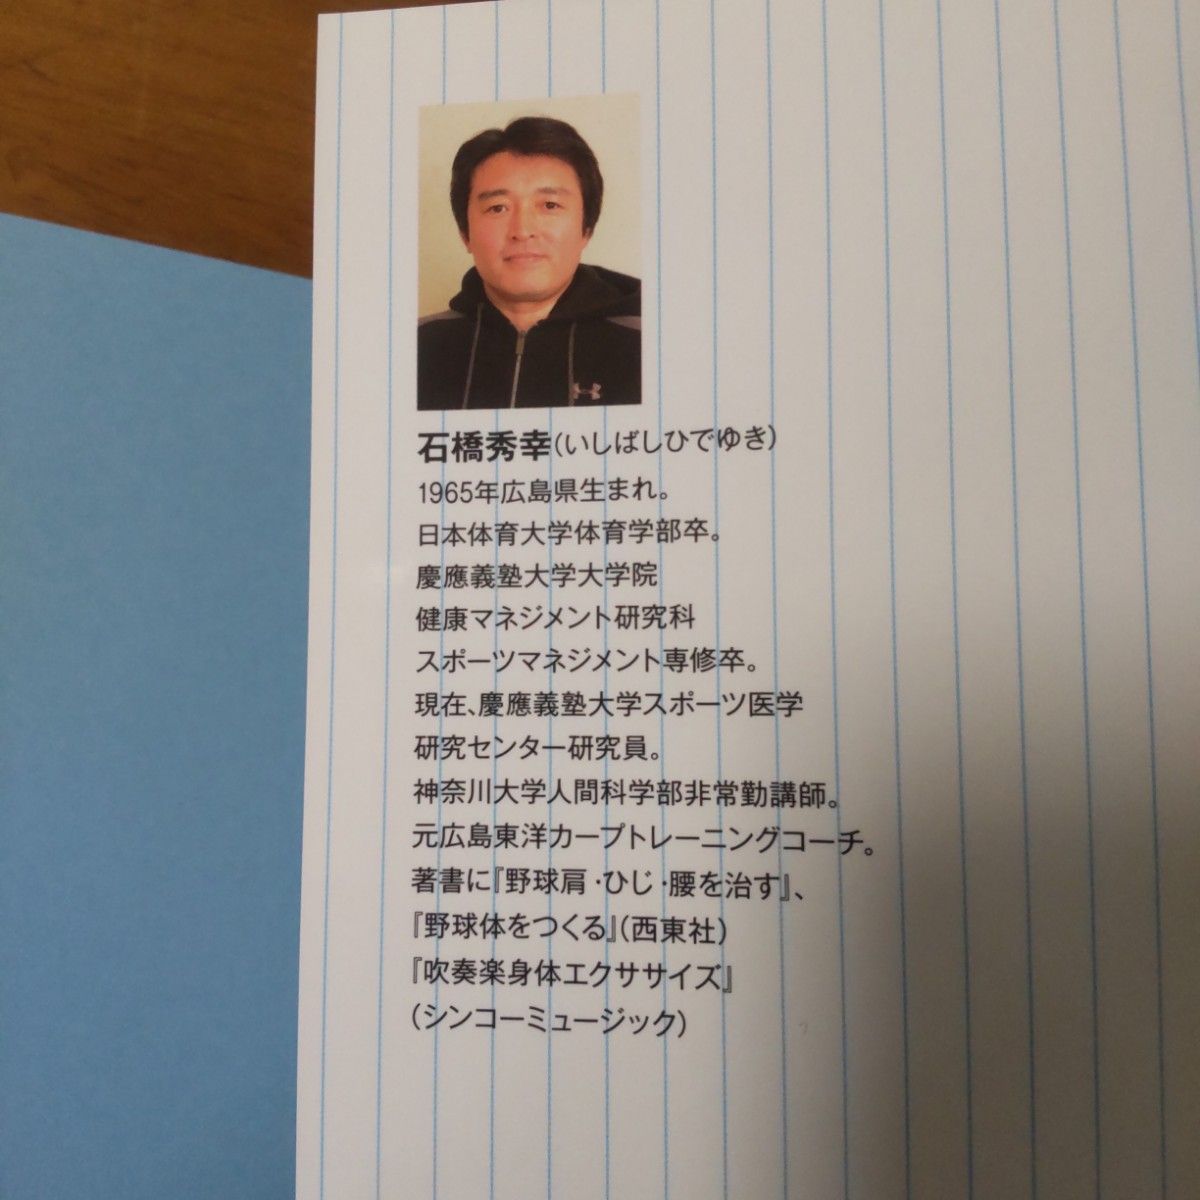 石橋秀幸(いしばしひでゆき)
1965年広島県生まれ。
日本体育大学体育学部卒。
慶應義塾大学大学院
健康マネジメント研究科
スポーツマネジメント専修卒。
現在、慶應義塾大学スポーツ医学
研究センター研究員。
神奈川大学人間科学部非常勤講師。
元広島東洋カープトレーニングコーチ。
著書に『野球肩・ひじ・腰を治す』、
『野球体をつくる』(西東社)
『吹奏楽身体エクササイズ』
(シンコーミュージック)